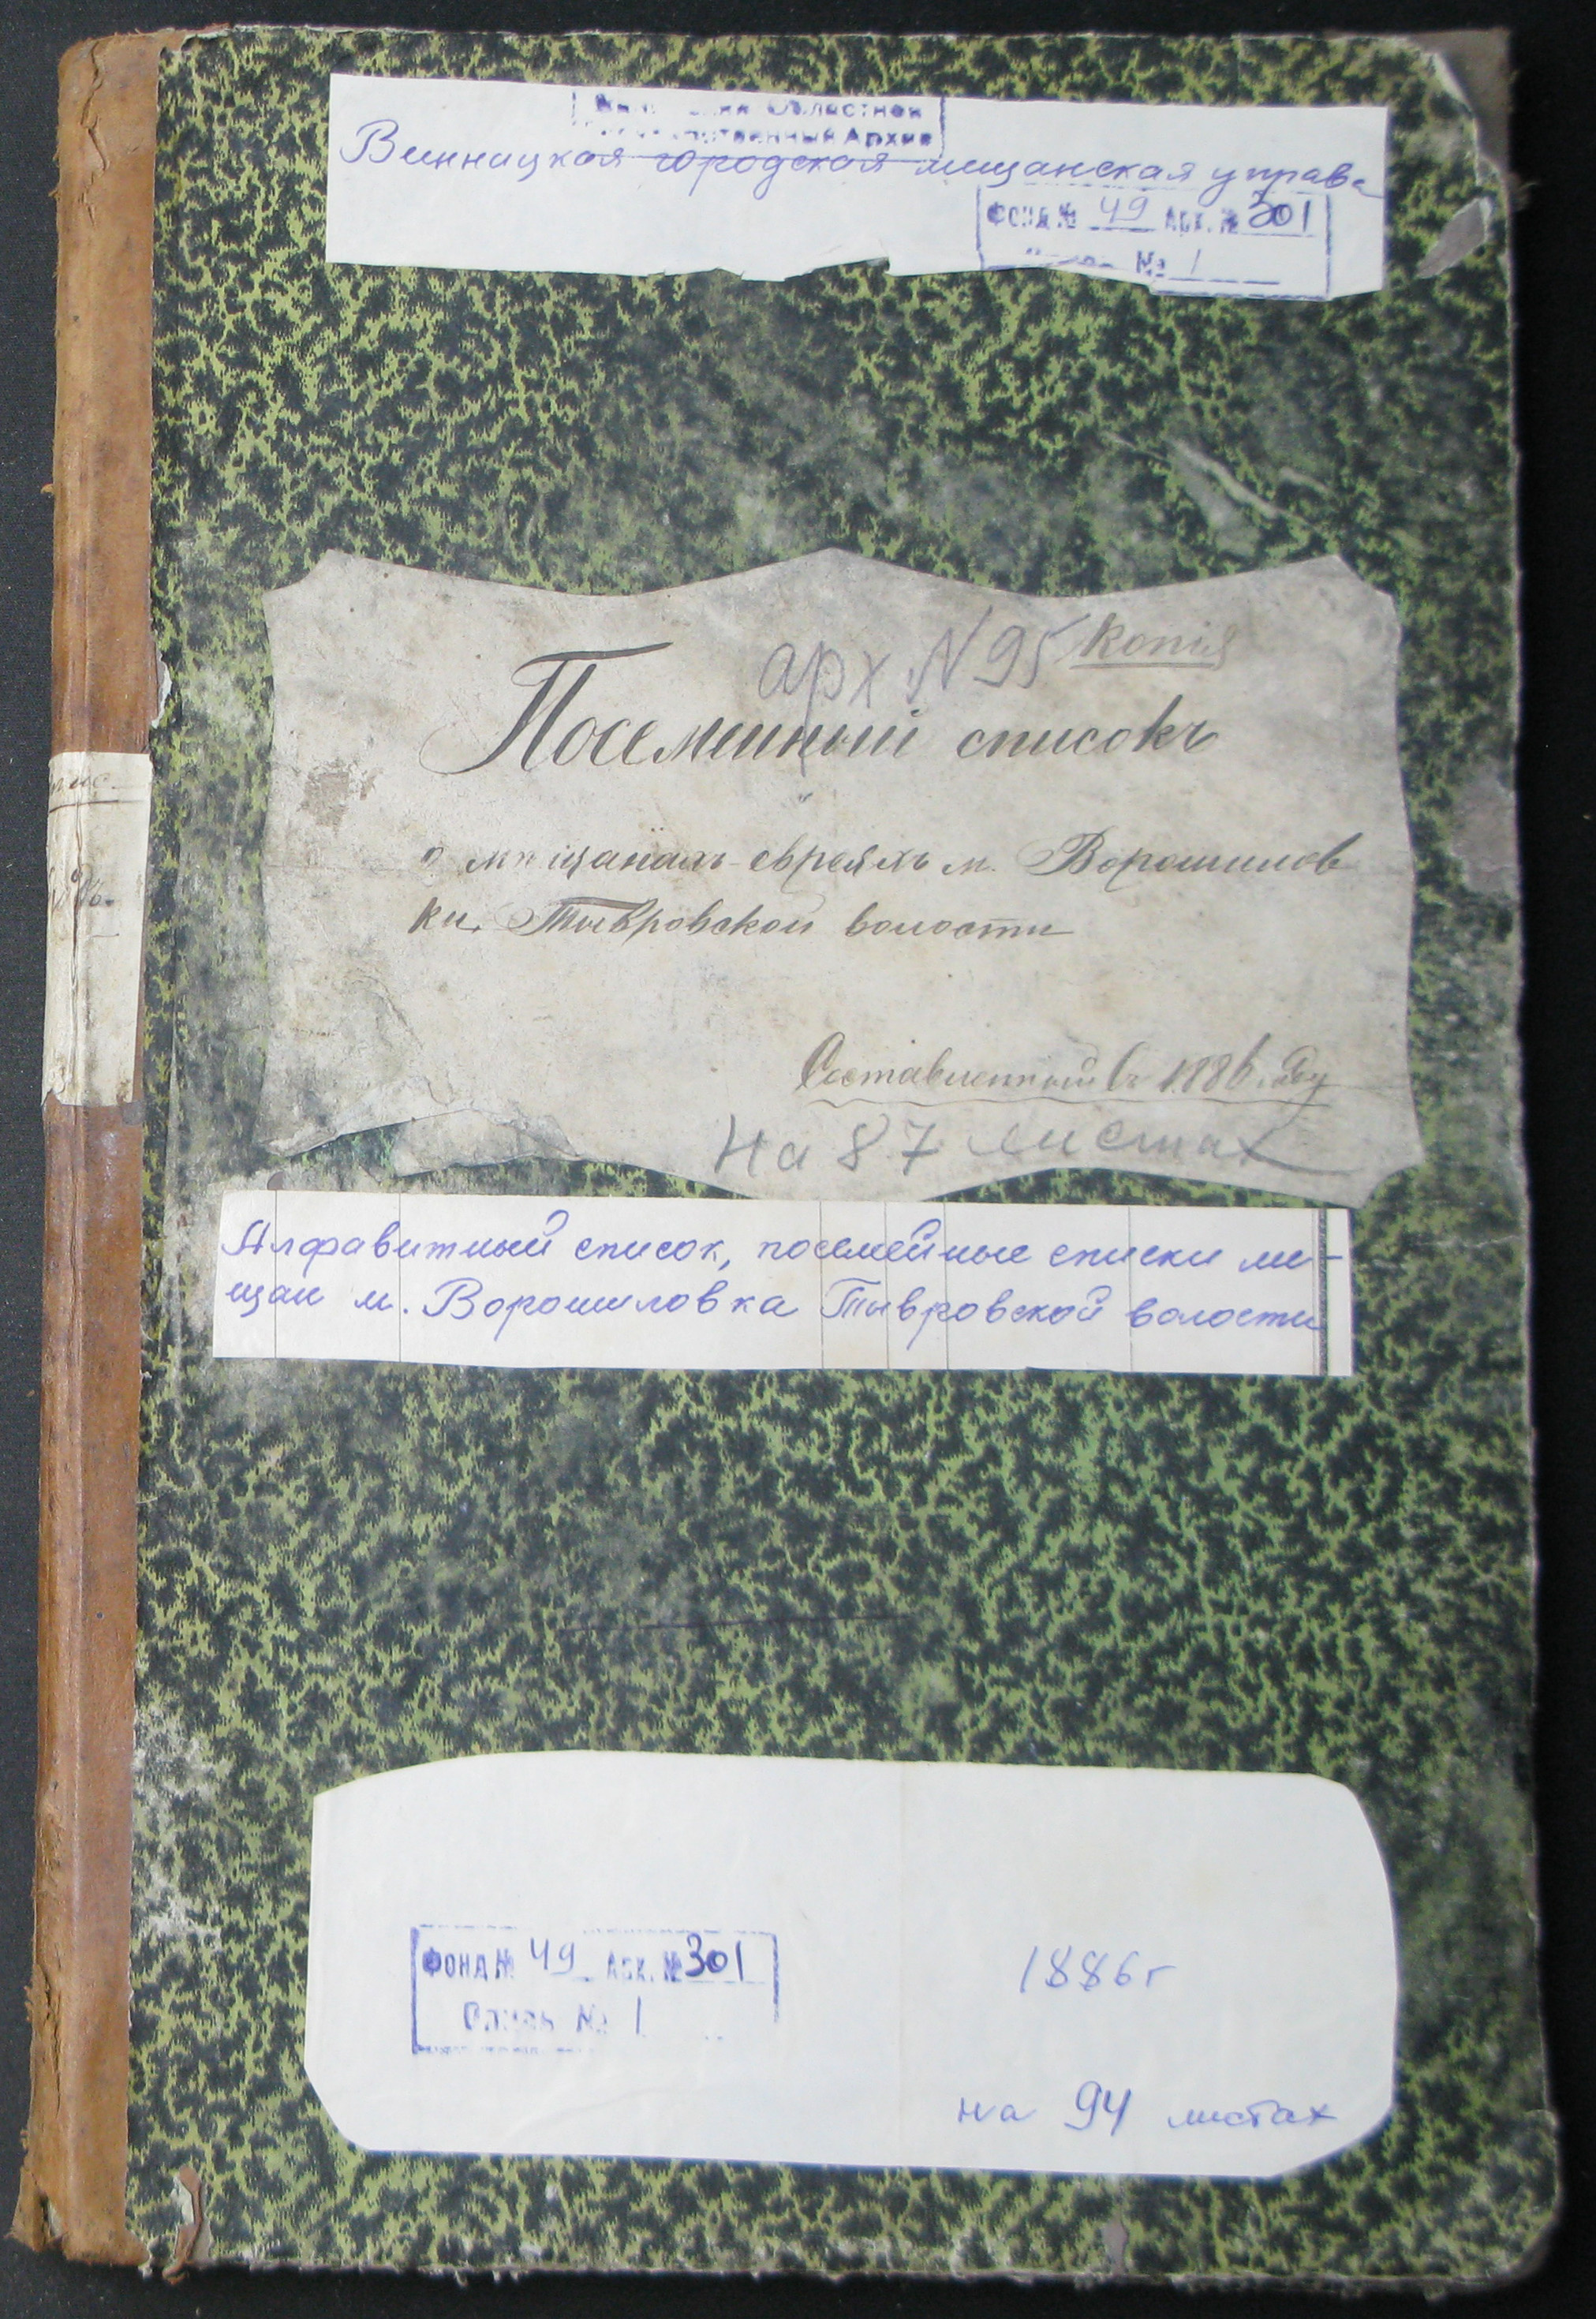 Областной
Архив
Винницкая городская мищанская управа
ФОНД № 49 АРХ. № 301
№ 1
арх N 95 Копія
Посемейный списокъ
о мѣщанахъ-евреяхъ м. Ворошилов
ки, Тывровской волости
Составленный въ 1886 году
на 87 листах
Алфавитный список, посемейные списки ме-
щан м. Ворошиловка Тывровской волости
ФОНД № 49 АРХ. № 301
Опись № 1
1886 г
на 94 листах